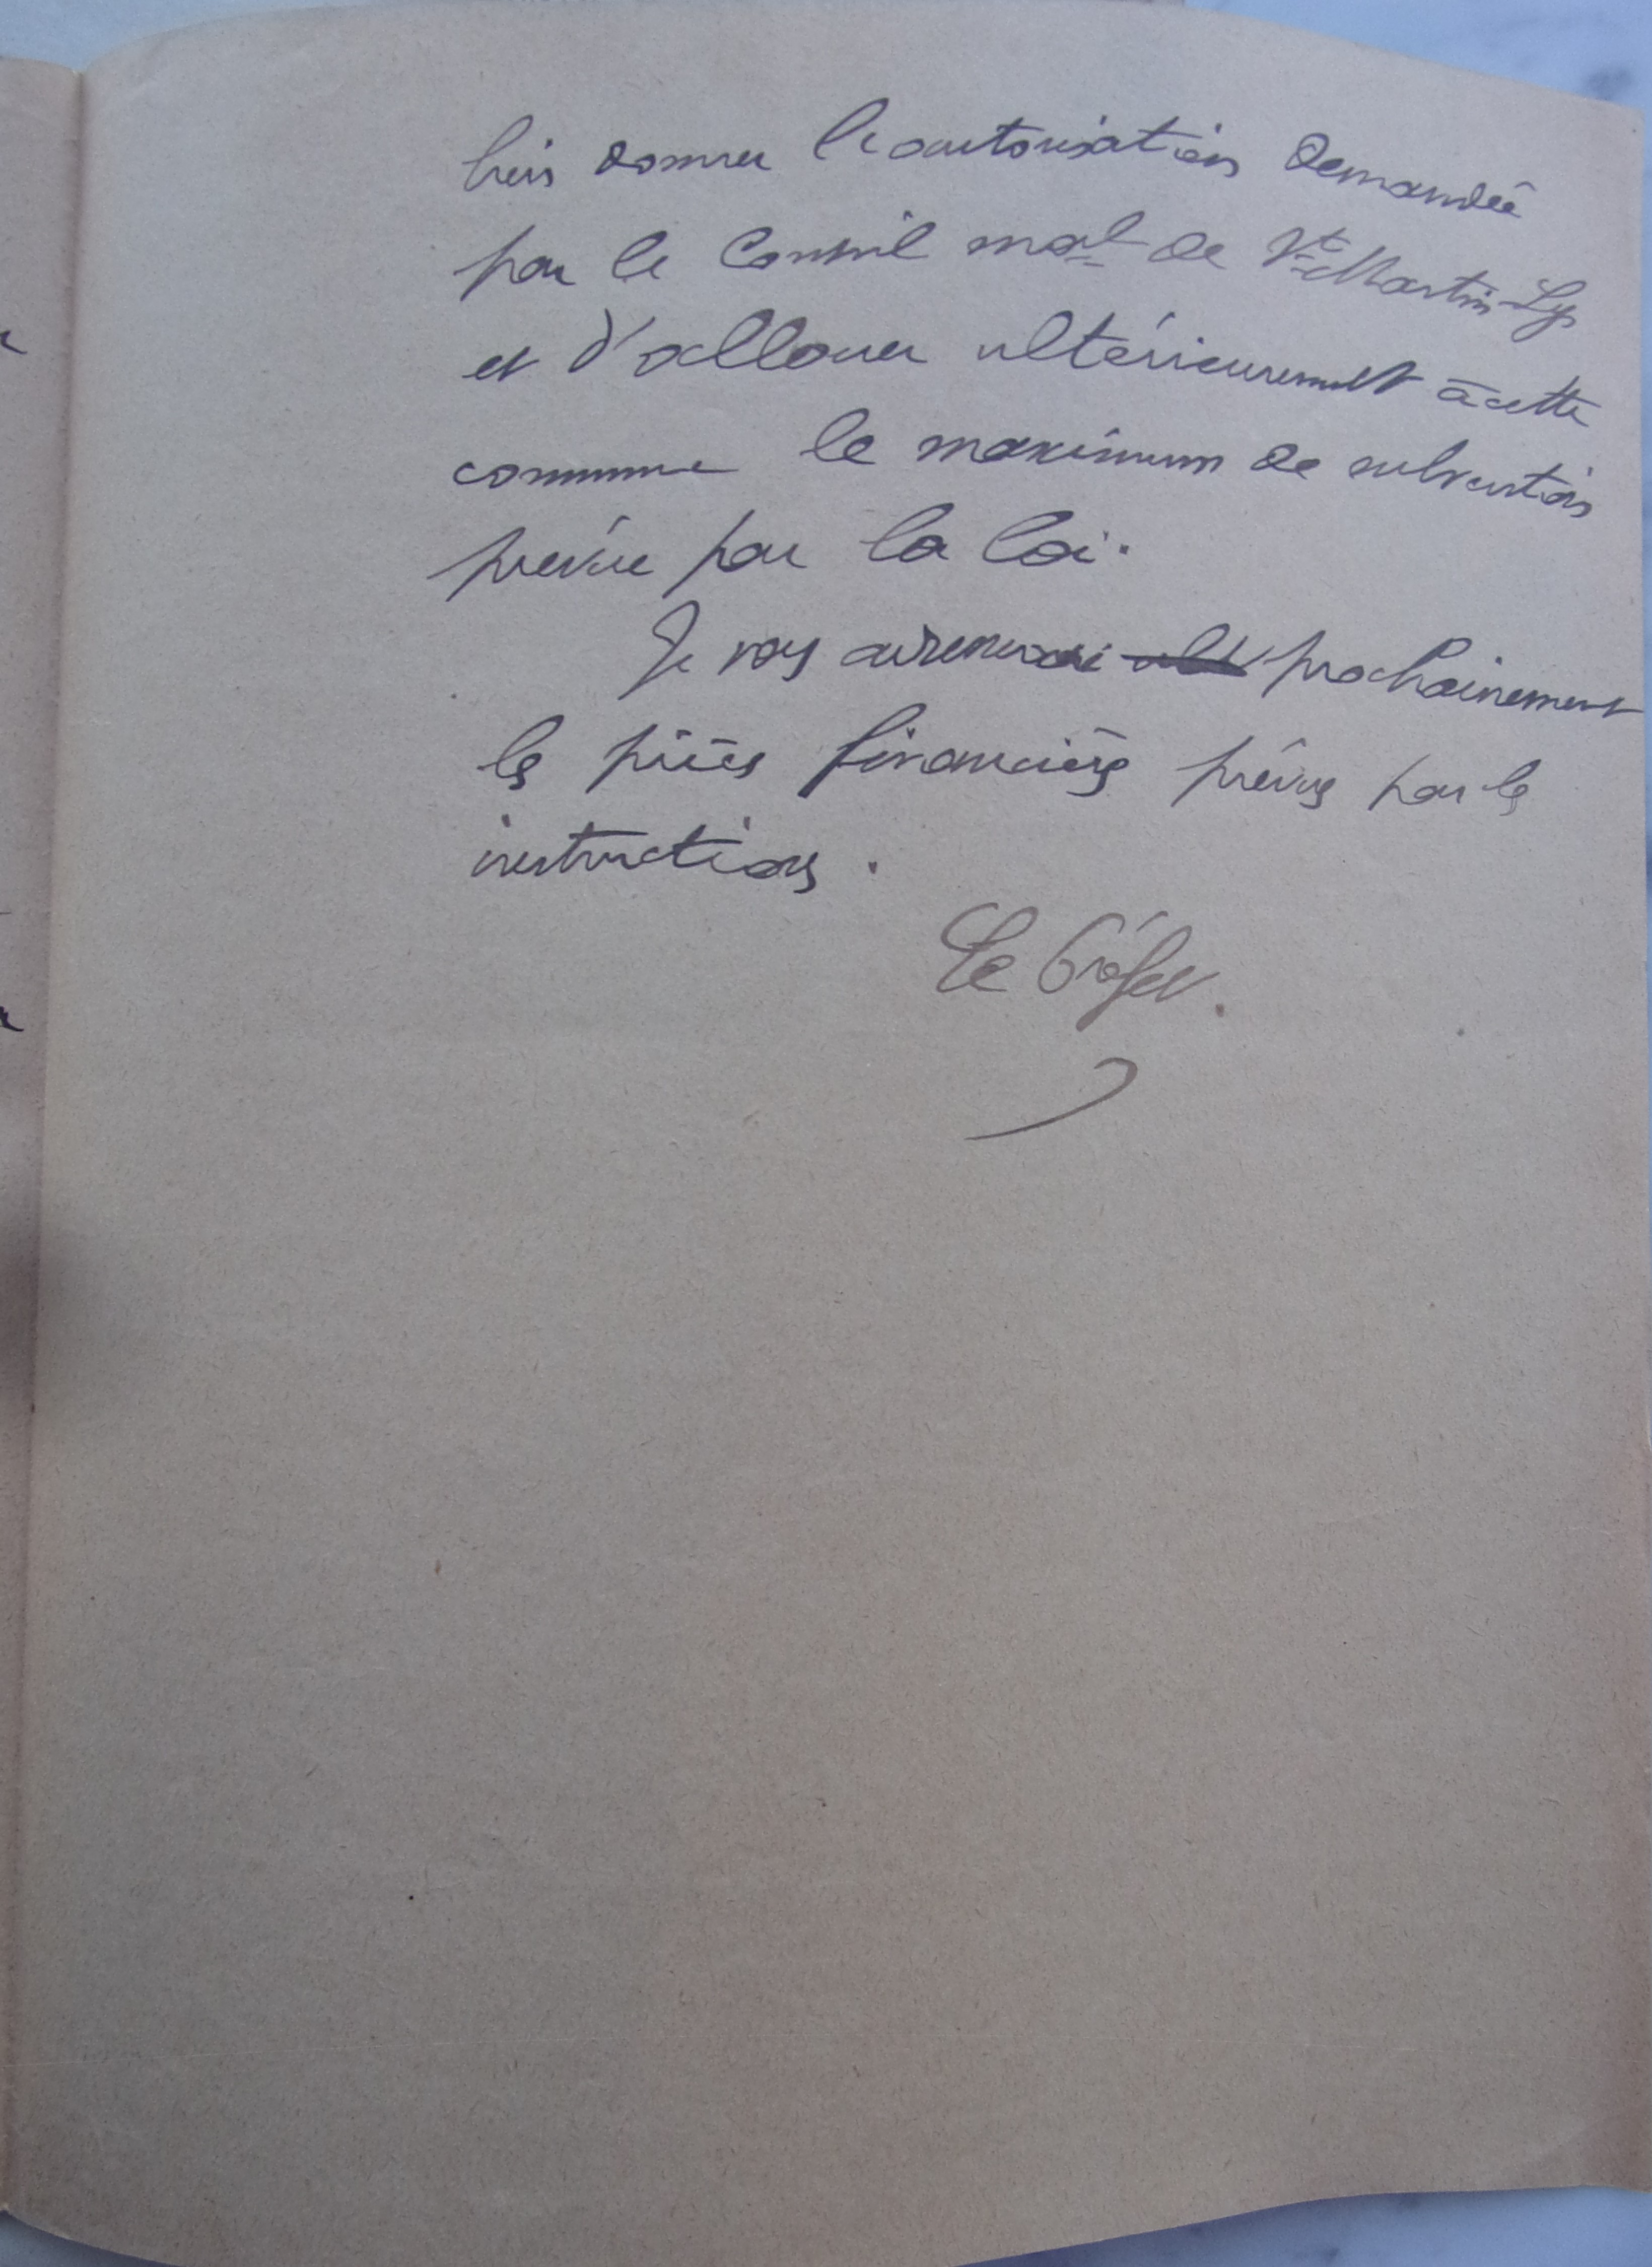 bien donner l'autorisation demandée
par le Conseil mal de St Martin-Lys
et d'allouer ultérieurement à cette
commune le maximum de subvention
prévue par la loi.
Je vous adresserai prochainement
les pièces financières prévues par les
instructions.
Le Préfet.